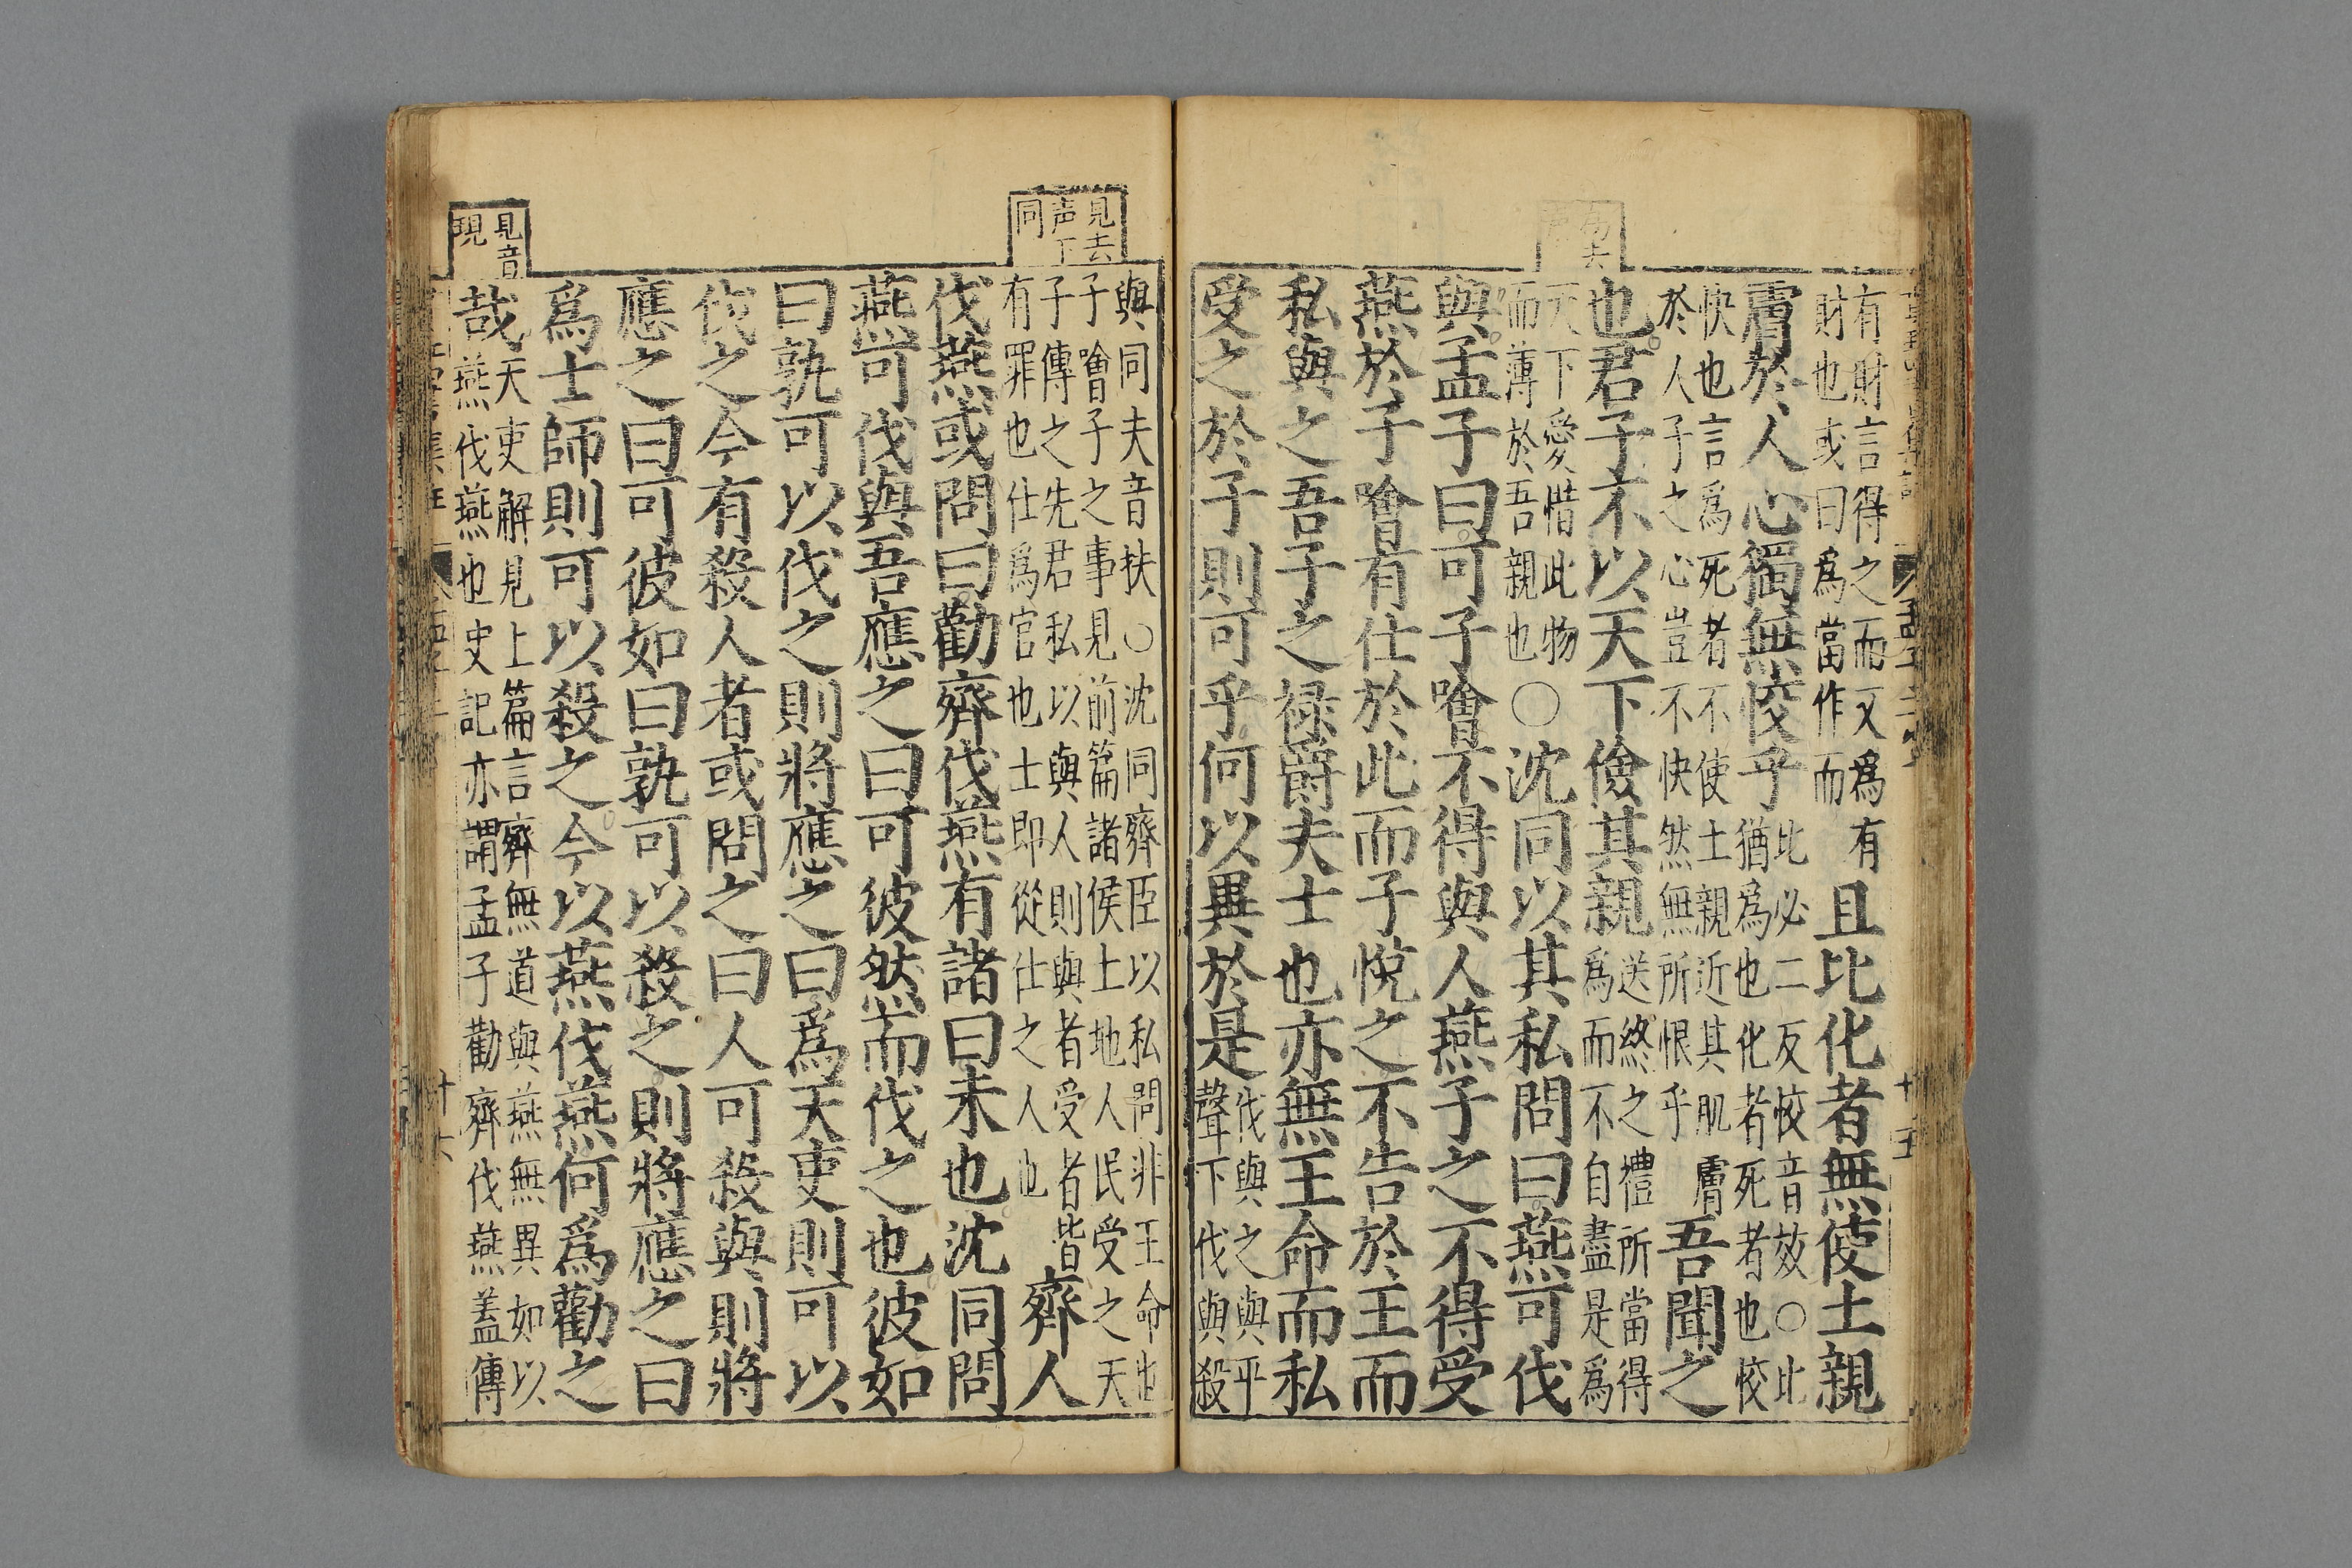 有財言得之而又爲有
財也或曰爲當作而
且比化者無使土親
膚於人心獨無恔乎
比必二反恔音效○比
猶爲也化者死者也恔
快也言爲死者不使土親近其肌膚
於人子之心豈不快然無所恨乎
吾聞之
也君子不以天下儉其親
送終之禮所當得
爲而不自盡是爲
天下愛惜此物
而薄於吾親也
○沈同以其私問曰燕可伐
與孟子曰可子噲不得與人燕子之不得受
燕於子噲有仕於此而子悅之不告於王而
私與之吾子之祿爵夫士也亦無王命而私
受之於子則可乎何以異於是
伐與之與平
聲下伐與殺
十五
見去
声下
同
與同夫音扶○沈同齊臣以私問非王命也
子噲子之事見前篇諸侯土地人民受之天
子傳之先君私以與人則與者受者皆
有罪也仕爲官也士即從仕之人也
齊人
伐燕或問曰勸齊伐燕有諸曰未也沈同問
燕可伐與吾應之曰可彼然而伐之也彼如
曰孰可以伐之則將應之曰爲天吏則可以
伐之今有殺人者或問之曰人可殺與則將
應之曰可彼如曰孰可以殺之則將應之曰
爲士師則可以殺之今以燕伐燕何爲勸之
見音
現
哉
天吏解見上篇言齊無道與燕無異如以
燕伐燕也史記亦謂孟子勸齊伐燕蓋傳
十六